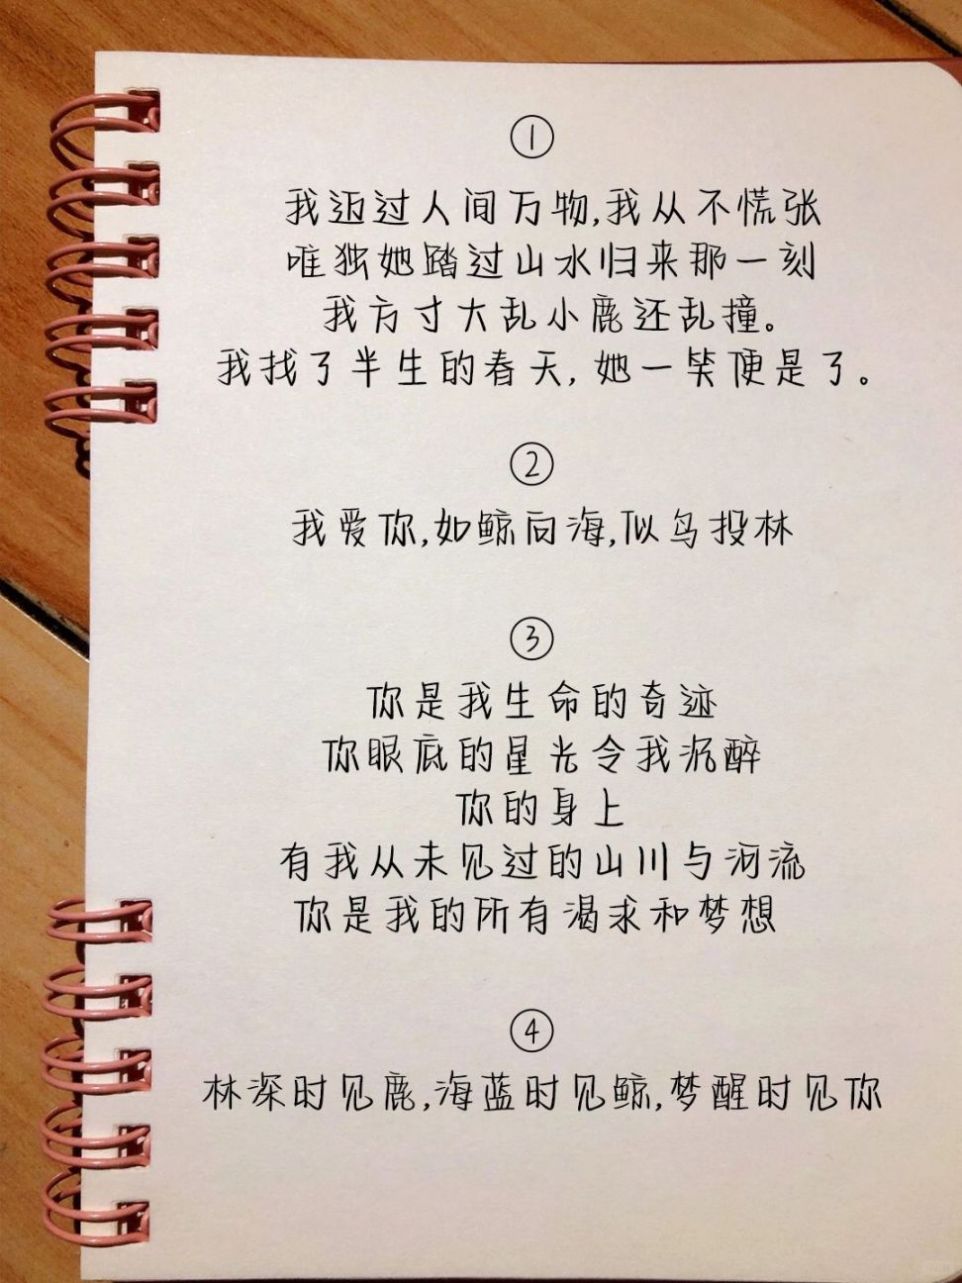 ①
我迈过人间万物,我从不慌张
唯独她踏过山水归来那一刻
我方寸大乱小鹿还乱撞。
我找了半生的春天, 她一笑便是了。
②
我爱你,如鲸向海,似鸟投林
③
你是我生命的奇迹
你眼底的星光令我沉醉
你的身上
有我从未见过的山川与河流
你是我的所有渴求和梦想
④
林深时见鹿,海蓝时见鲸,梦醒时见你